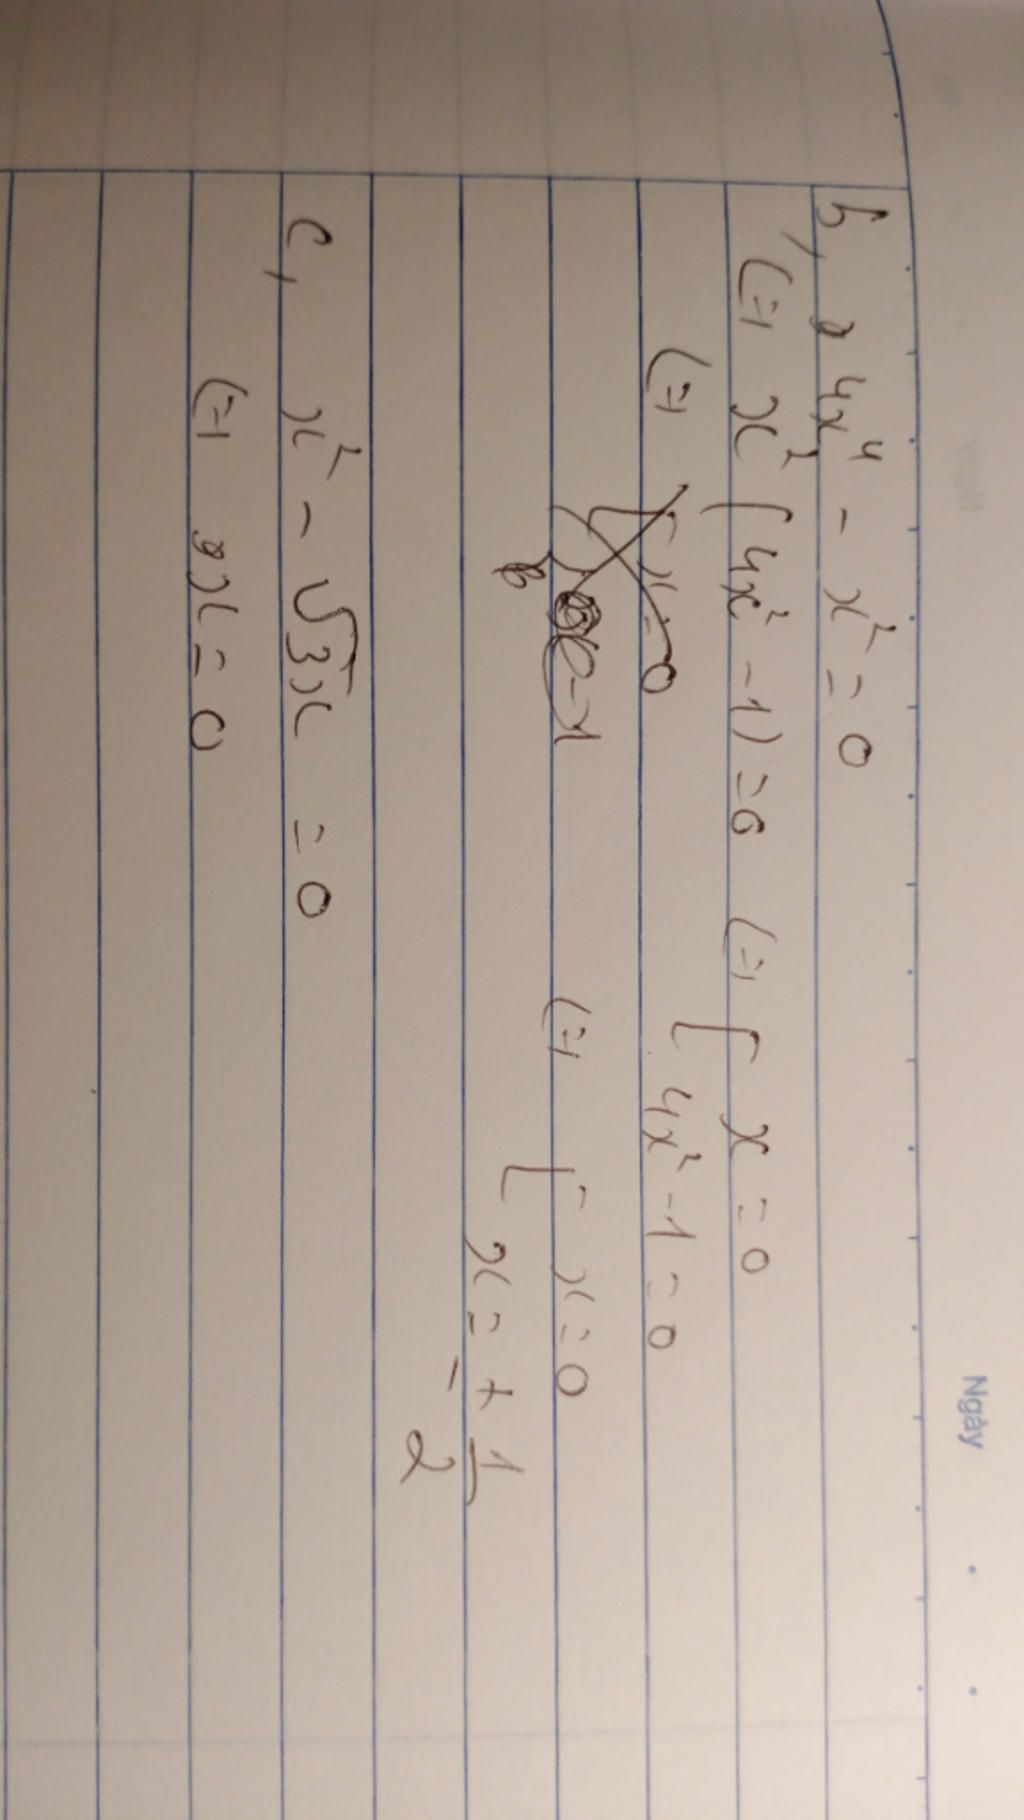 Ngày
b, 4x⁴ - x² = 0
(=) x² (4x² - 1) = 0 (=) [ x = 0
(=) [ x = 0 4x² - 1 = 0
(=) [ x = 0
x = ± 1/2
c, x² - √3x = 0
(=) x = 0